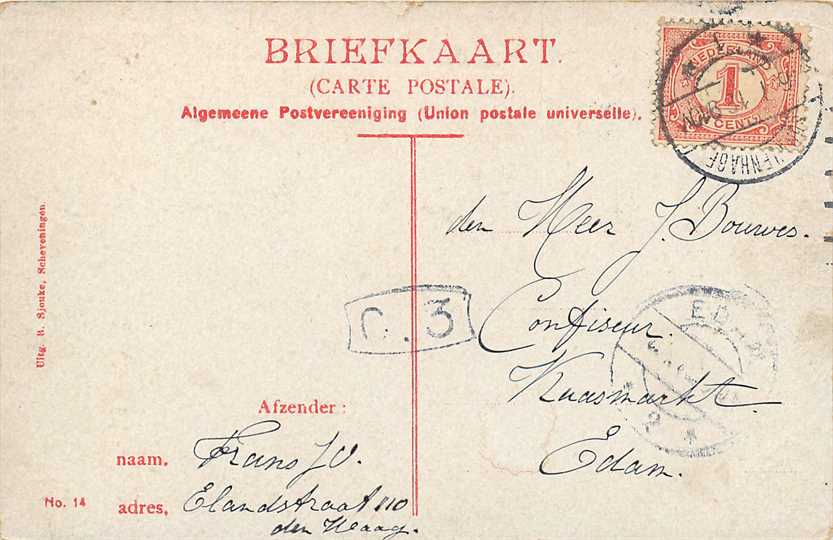 BRIEFKAART.
(CARTE POSTALE).
Algemeene Postvereeniging (Union postale universelle).
NEDERLAND
1
CENT
den Heer J. Bouwes.
Confiseur.
Kaasmarkt.
Edam.
C. 3
EDAM
2
Uitg. B. Sjouke, Scheveningen.
Afzender:
naam. Frans J V.
adres, Elandstraat 110
den Haag.
No. 14